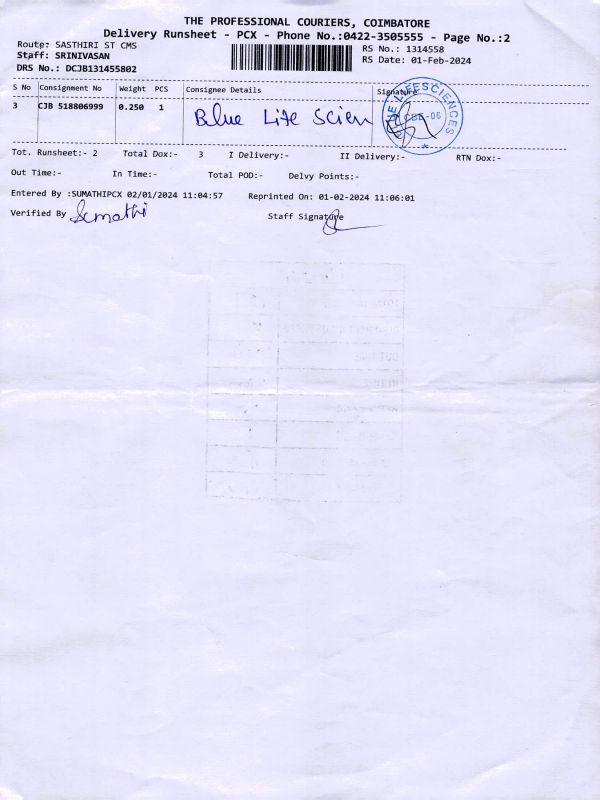 THE PROFESSIONAL COURIERS, COIMBATORE
Delivery Runsheet - PCX - Phone No.:0422-3505555 - Page No.:2
Route: SASTHIRI ST CMS
Staff: SRINIVASAN
DRS No.: DCJB131455802
RS No.: 1314558
RS Date: 01-Feb-2024
S No Consignment No Weight PCS Consignee Details Signature
3 CJB 518806999 0.250 1 Blue Life Scien
LIFESCIENCES
CBE-06
Tot. Runsheet:- 2 Total Dox:- 3 I Delivery:- II Delivery:- RTN Dox:-
Out Time:- In Time:- Total POD:- Delvy Points:-
Entered By :SUMATHIPCX 02/01/2024 11:04:57 Reprinted On: 01-02-2024 11:06:01
Verified By Sumathi Staff Signature